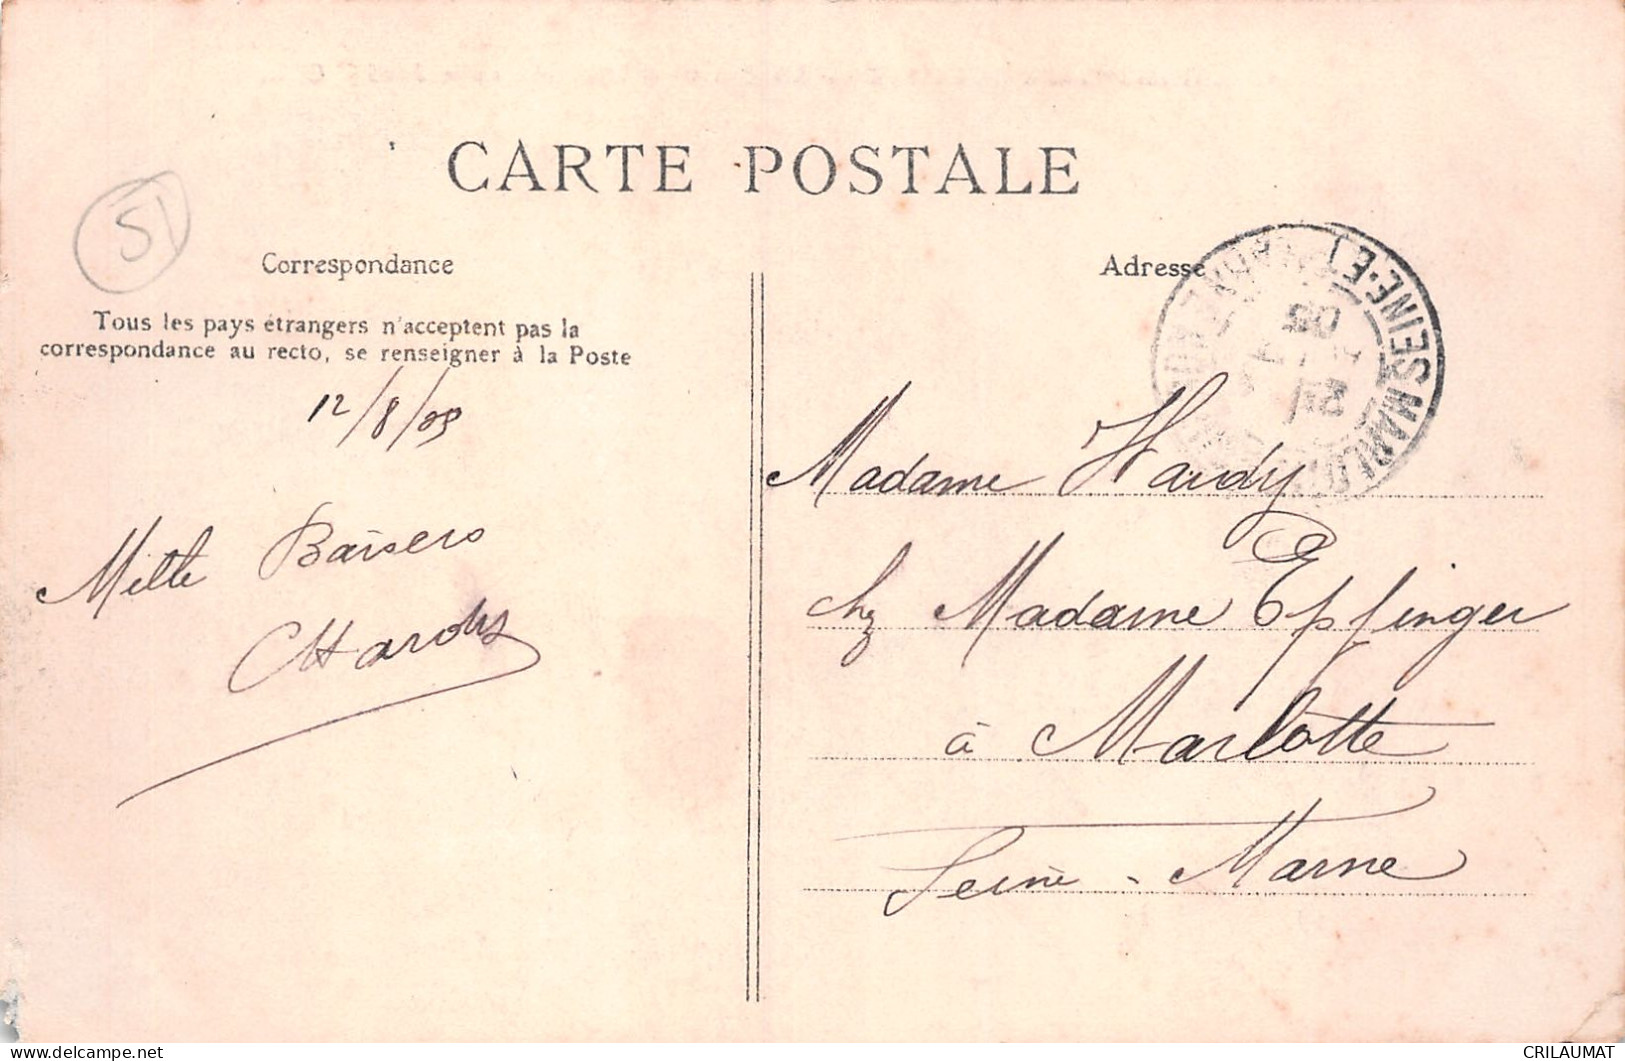 CARTE POSTALE
51
Correspondance
Tous les pays étrangers n'acceptent pas la
correspondance au recto, se renseigner à la Poste
12/8/09
Mille Baisers
CHardy
Adresse
SEINE-ET-MARNE
Madame Hardy
chz Madame Epfinger
à Marlotte
Seine-Marne
CRILAUMAT